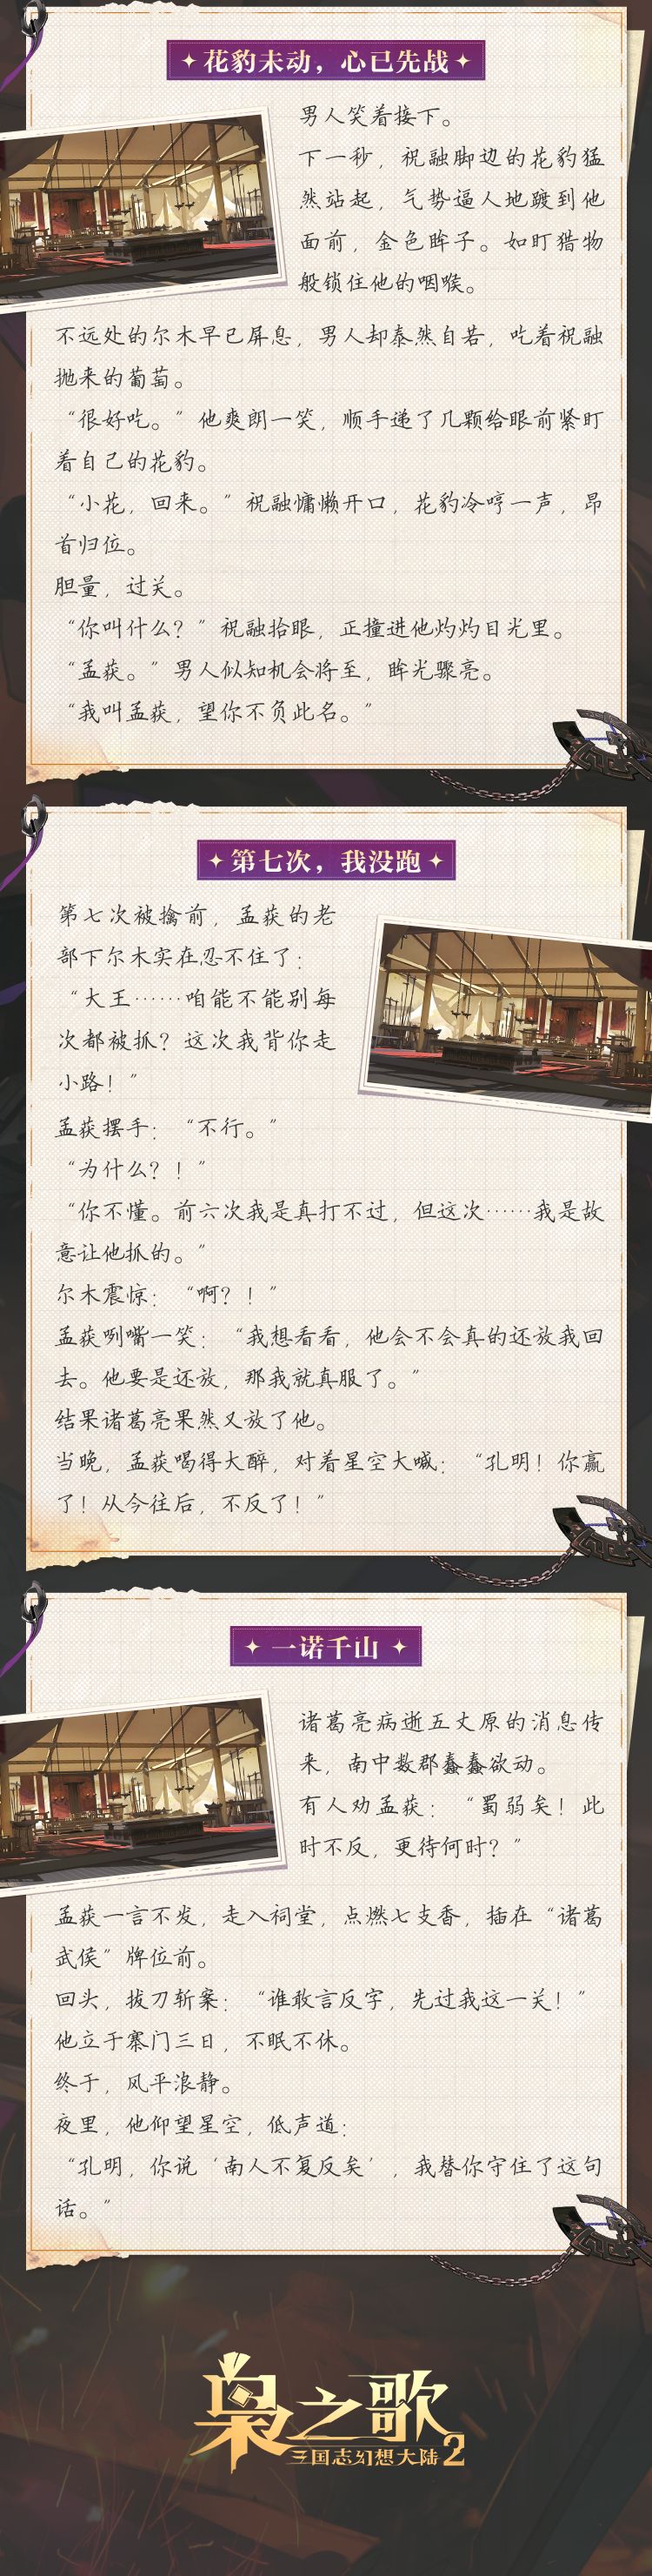 花豹未动，心已先战
男人笑着接下。
下一秒，祝融脚边的花豹猛
然站起，气势逼人地踱到他
面前，金色眸子。如盯猎物
般锁住他的咽喉。
不远处的尔木早已屏息，男人却泰然自若，吃着祝融
抛来的葡萄。
“很好吃。”他爽朗一笑，顺手递了几颗给眼前紧盯
着自己的花豹。
“小花，回来。”祝融慵懒开口，花豹冷哼一声，昂
首归位。
胆量，过关。
“你叫什么？”祝融抬眼，正撞进他灼灼目光里。
“孟获。”男人似知机会将至，眸光骤亮。
“我叫孟获，望你不负此名。”
第七次，我没跑
第七次被擒前，孟获的老
部下尔木实在忍不住了：
“大王……咱能不能别每
次都被抓？这次我背你走
小路！”
孟获摆手：“不行。”
“为什么？！”
“你不懂。前六次我是真打不过，但这次……我是故
意让他抓的。”
尔木震惊：“啊？！”
孟获咧嘴一笑：“我想看看，他会不会真的还放我回
去。他要是还放，那我就真服了。”
结果诸葛亮果然又放了他。
当晚，孟获喝得大醉，对着星空大喊：“孔明！你赢
了！从今往后，不反了！”
一诺千山
诸葛亮病逝五丈原的消息传
来，南中数郡蠢蠢欲动。
有人劝孟获：“蜀弱矣！此
时不反，更待何时？”
孟获一言不发，走入祠堂，点燃七支香，插在“诸葛
武侯”牌位前。
回头，拔刀斩案：“谁敢言反字，先过我这一关！”
他立于寨门三日，不眠不休。
终于，风平浪静。
夜里，他仰望星空，低声道：
“孔明，你说‘南人不复反矣’，我替你守住了这句
话。”
枭之歌
三国志幻想大陆2